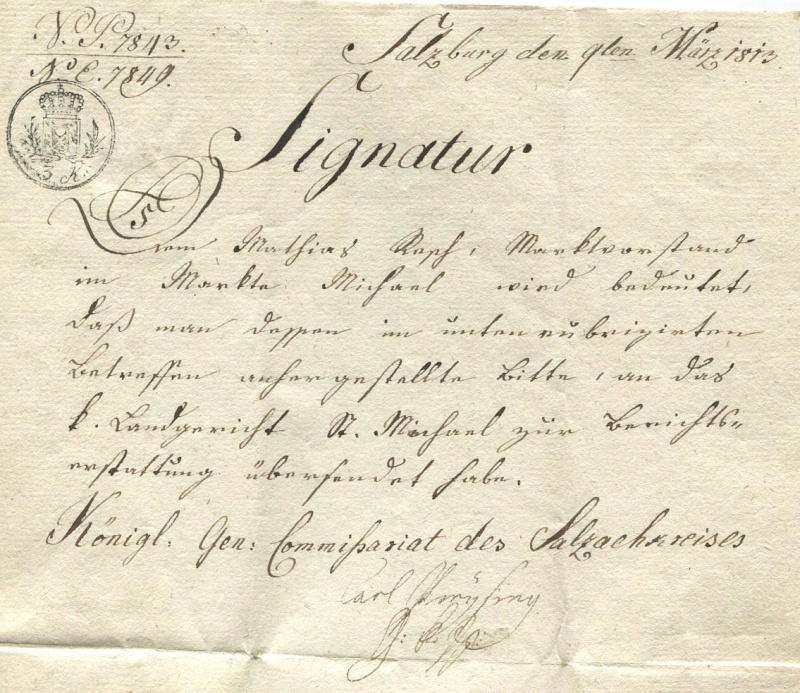 N. P. 7843.
Salzburg den 9ten März 1813
N. E. 7849.
3 K.
Signatur
Dem Mathias Resch, Marktvorstand
im Markte Michael wird bedeutet,
daß man dessen im unten rubrizirten
Betreffen anher gestellte Bitte, an das
k. Landgericht St. Michael zur Berichts-
erstattung übersendet habe.
Königl: Gen: Commißariat des Salzachkreises
Carl Preysing